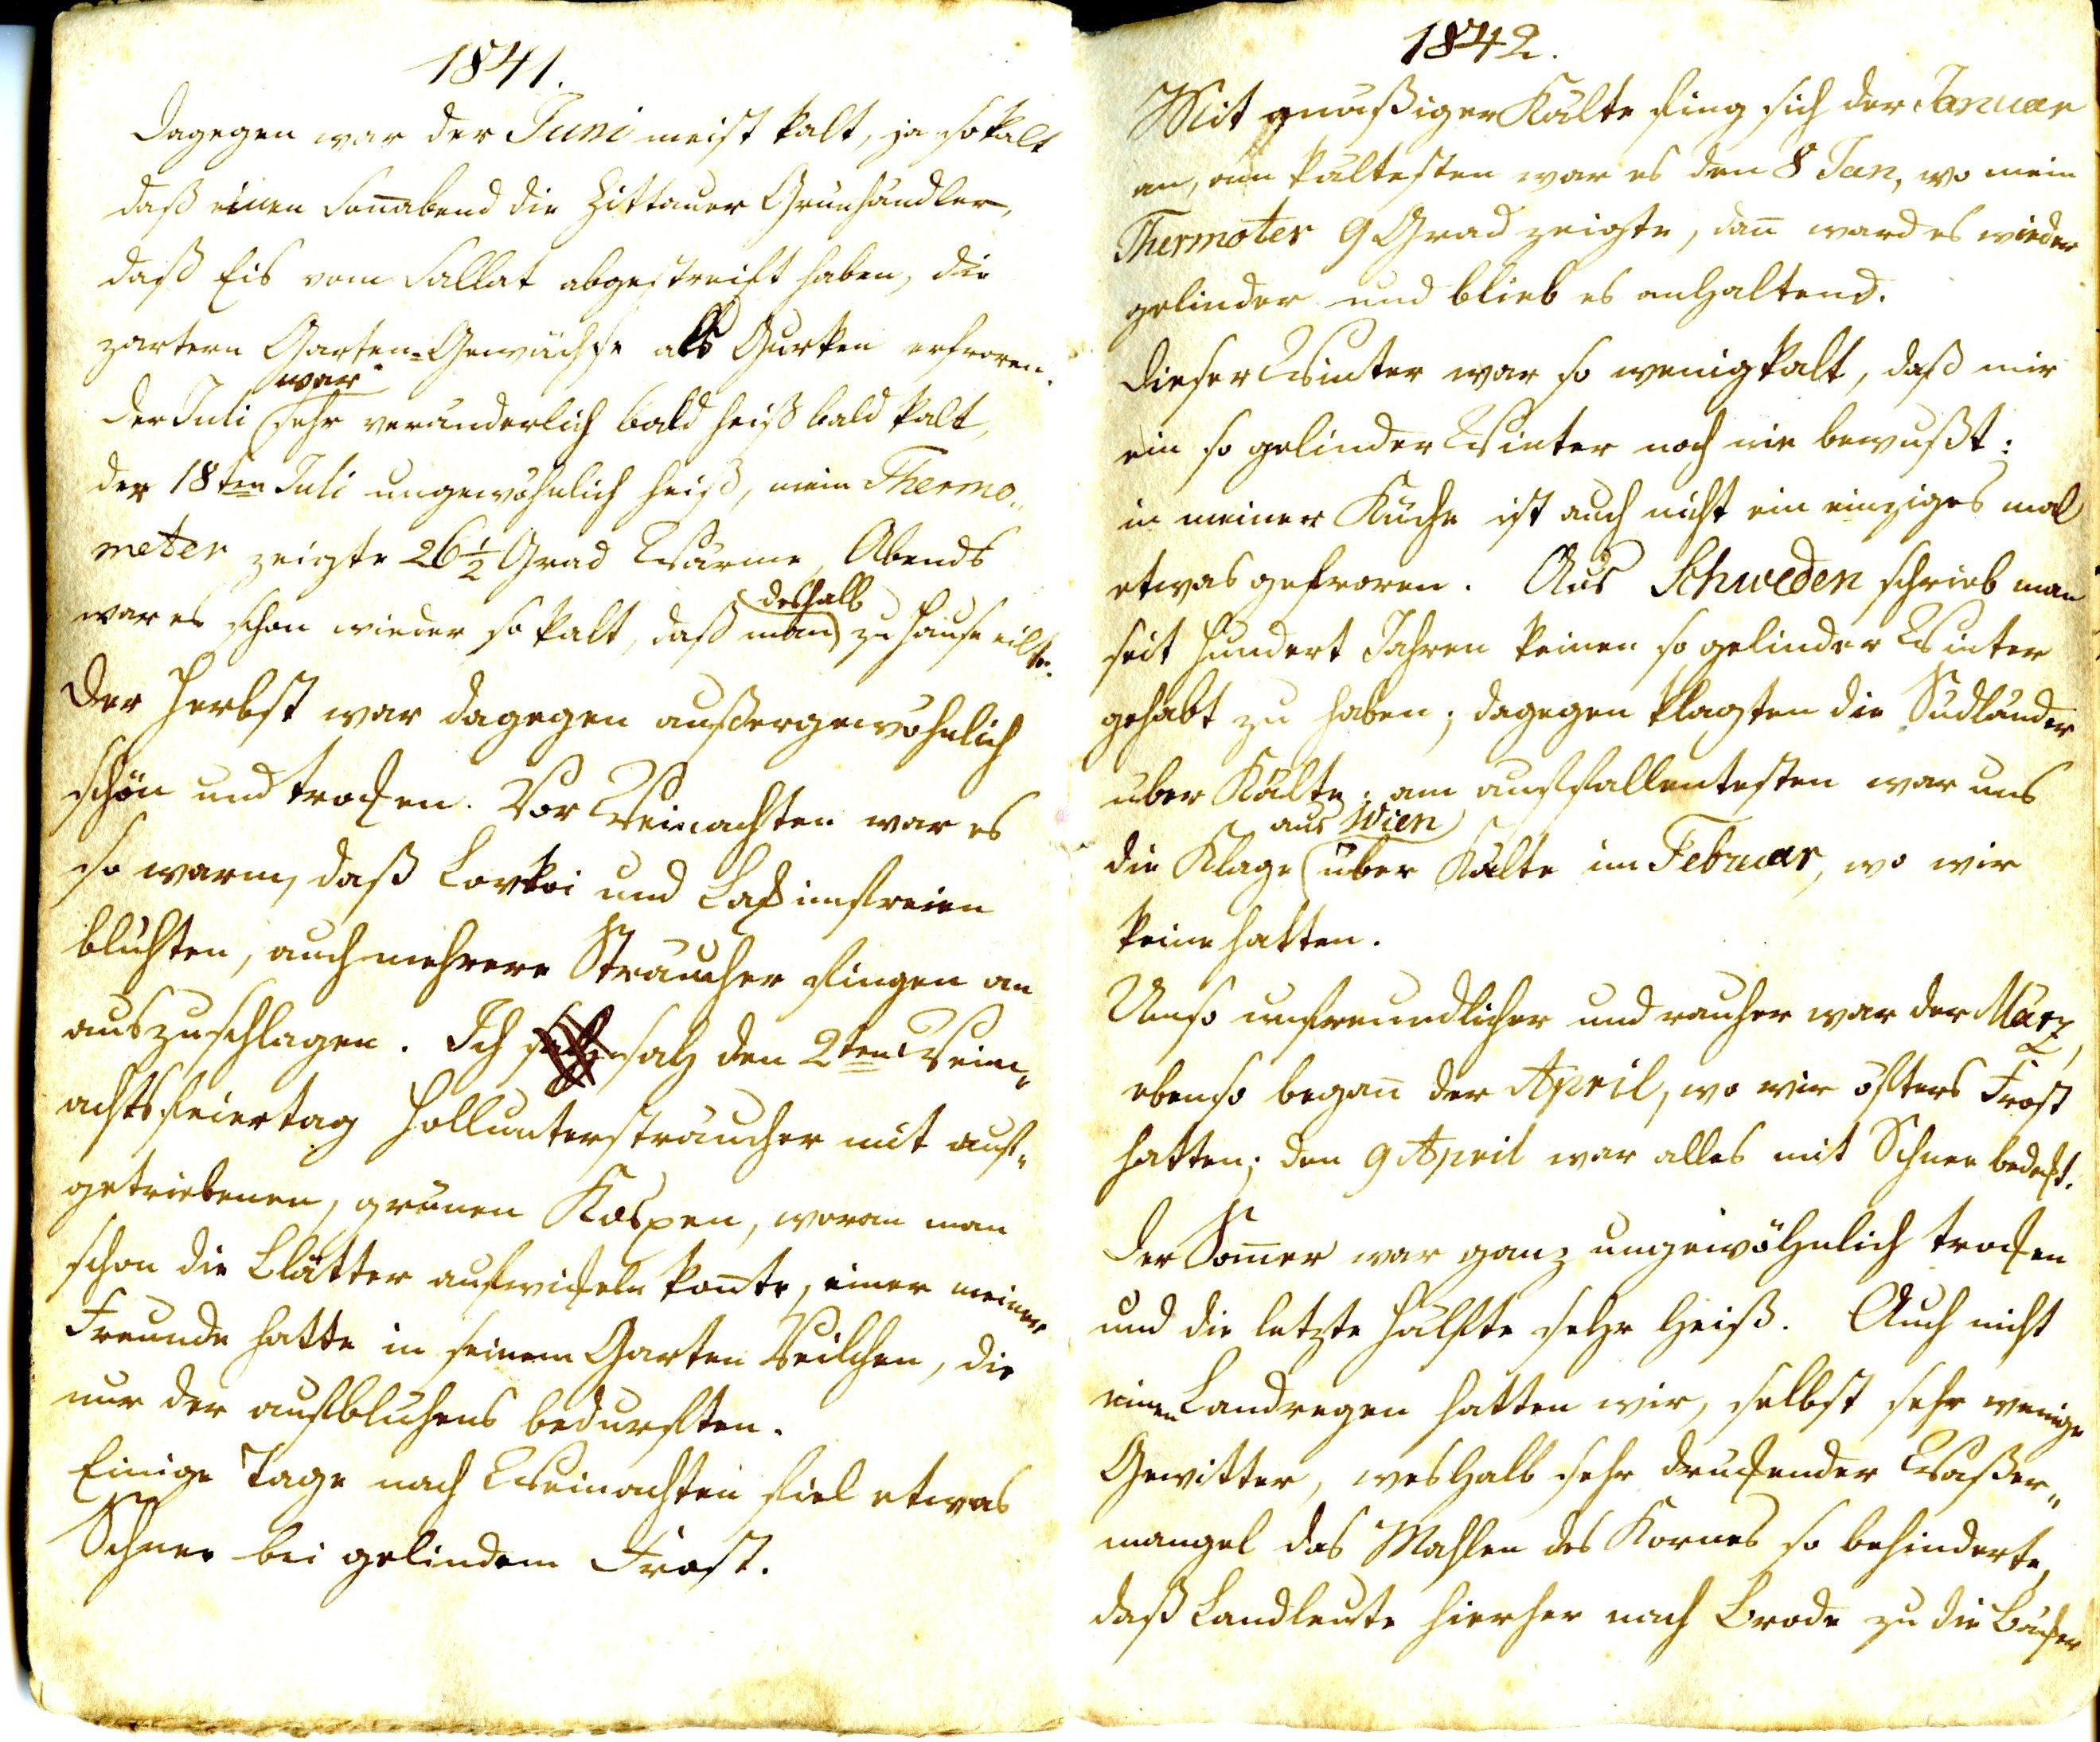 1841.
Dagegen war der Juni meist kalt, ja so kalt
daß einen Soñabend die Zittauer Grünhändler,
daß Eis vom Sallat abgestreift haben, die
zartern Garten-Gewächse als Gurken erfroren.
war
Der Juli sehr veränderlich bald heiß bald kalt,
der 18ten Juli ungewöhnlich heiß, mein Thermo„
meter zeigte 26½ Grad Wärme, Abends
deshalb
war es schon wieder so kalt, daß man zu Hause eilte.
Der Herbst war dagegen außergewöhnlich
schön und trocken. Vor Weinachten war es
so warm, daß Lovkoi und Lack im freien
blühten, auch mehrere Sträucher fingen an
auszuschlagen. Ich sah den 2ten Wein„
achtsfeiertag Holluntersträucher mit auf„
getriebenen, grünen Knospen, woran man
schon die Blätter aufwickeln koñte, einer meiner
Freunde hatte in seinem Garten Veilchen, die
nur der aufblühens bedurften.
Einige Tage nach Weinachten fiel etwas
Schnee bei gelindem Frost.
1842.
Mit mäßiger Kälte fing sich der Januar
an, am kältesten war es den 8 Jan, wo mein
Thermoter 9 Grad zeigte, dañ ward es wieder
gelinder und blieb es anhaltend.
Dieser Winter war so wenig kalt, daß mir
ein so gelinder Winter noch nie bewußt:
in meiner Küche ist auch nicht ein einziges mal
etwas gefroren. Aus Schweden schrieb man
seit hundert Jahren keinen so gelinder Winter
gehabt zu haben; dagegen klagten die Südländer
über Kälte; am auffallentesten war uns
aus Wien
die Klage über Kälte im Februar, wo wir
keine hatten.
Umso unfreundlicher und rauher war der März,
ebenso begañ der April, wo wir öfters Frost
hatten; den 9 April war alles mit Schnee bedekt.
Der Som̃er war ganz ungewöhnlich trocken
und die letzte Hälfte sehr heiß. Auch nicht
einen Landregen hatten wir, selbst sehr wenige
Gewitter, weshalb sehr drückender Waßer„
mangel das Mahlen des Kornes so behinderte,
daß Landleute hierher nach Brode zu die Bäcker